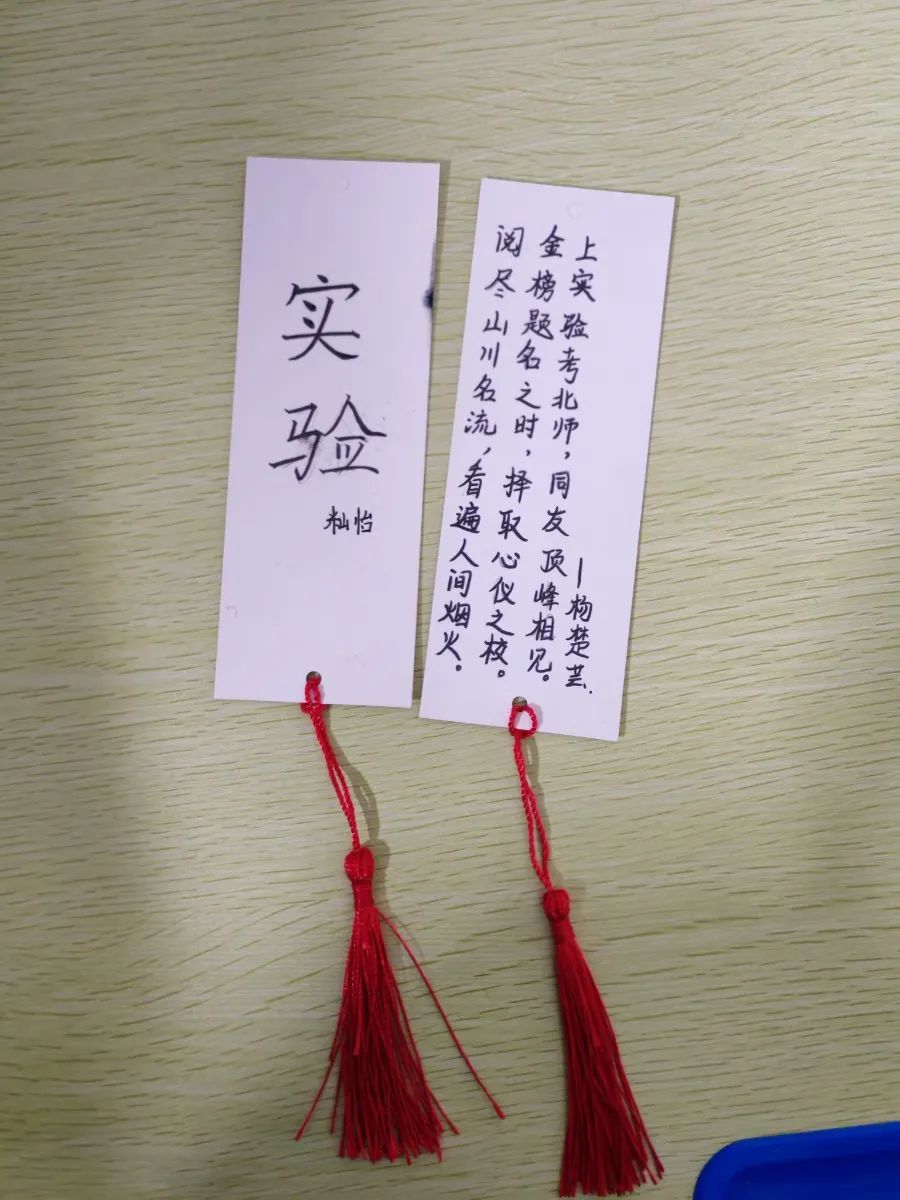 实验
籼怡
阅尽山川名流，看遍人间烟火。
金榜题名之时，择取心仪之校。
上实验考北师，同友顶峰相见。
—杨楚芸.